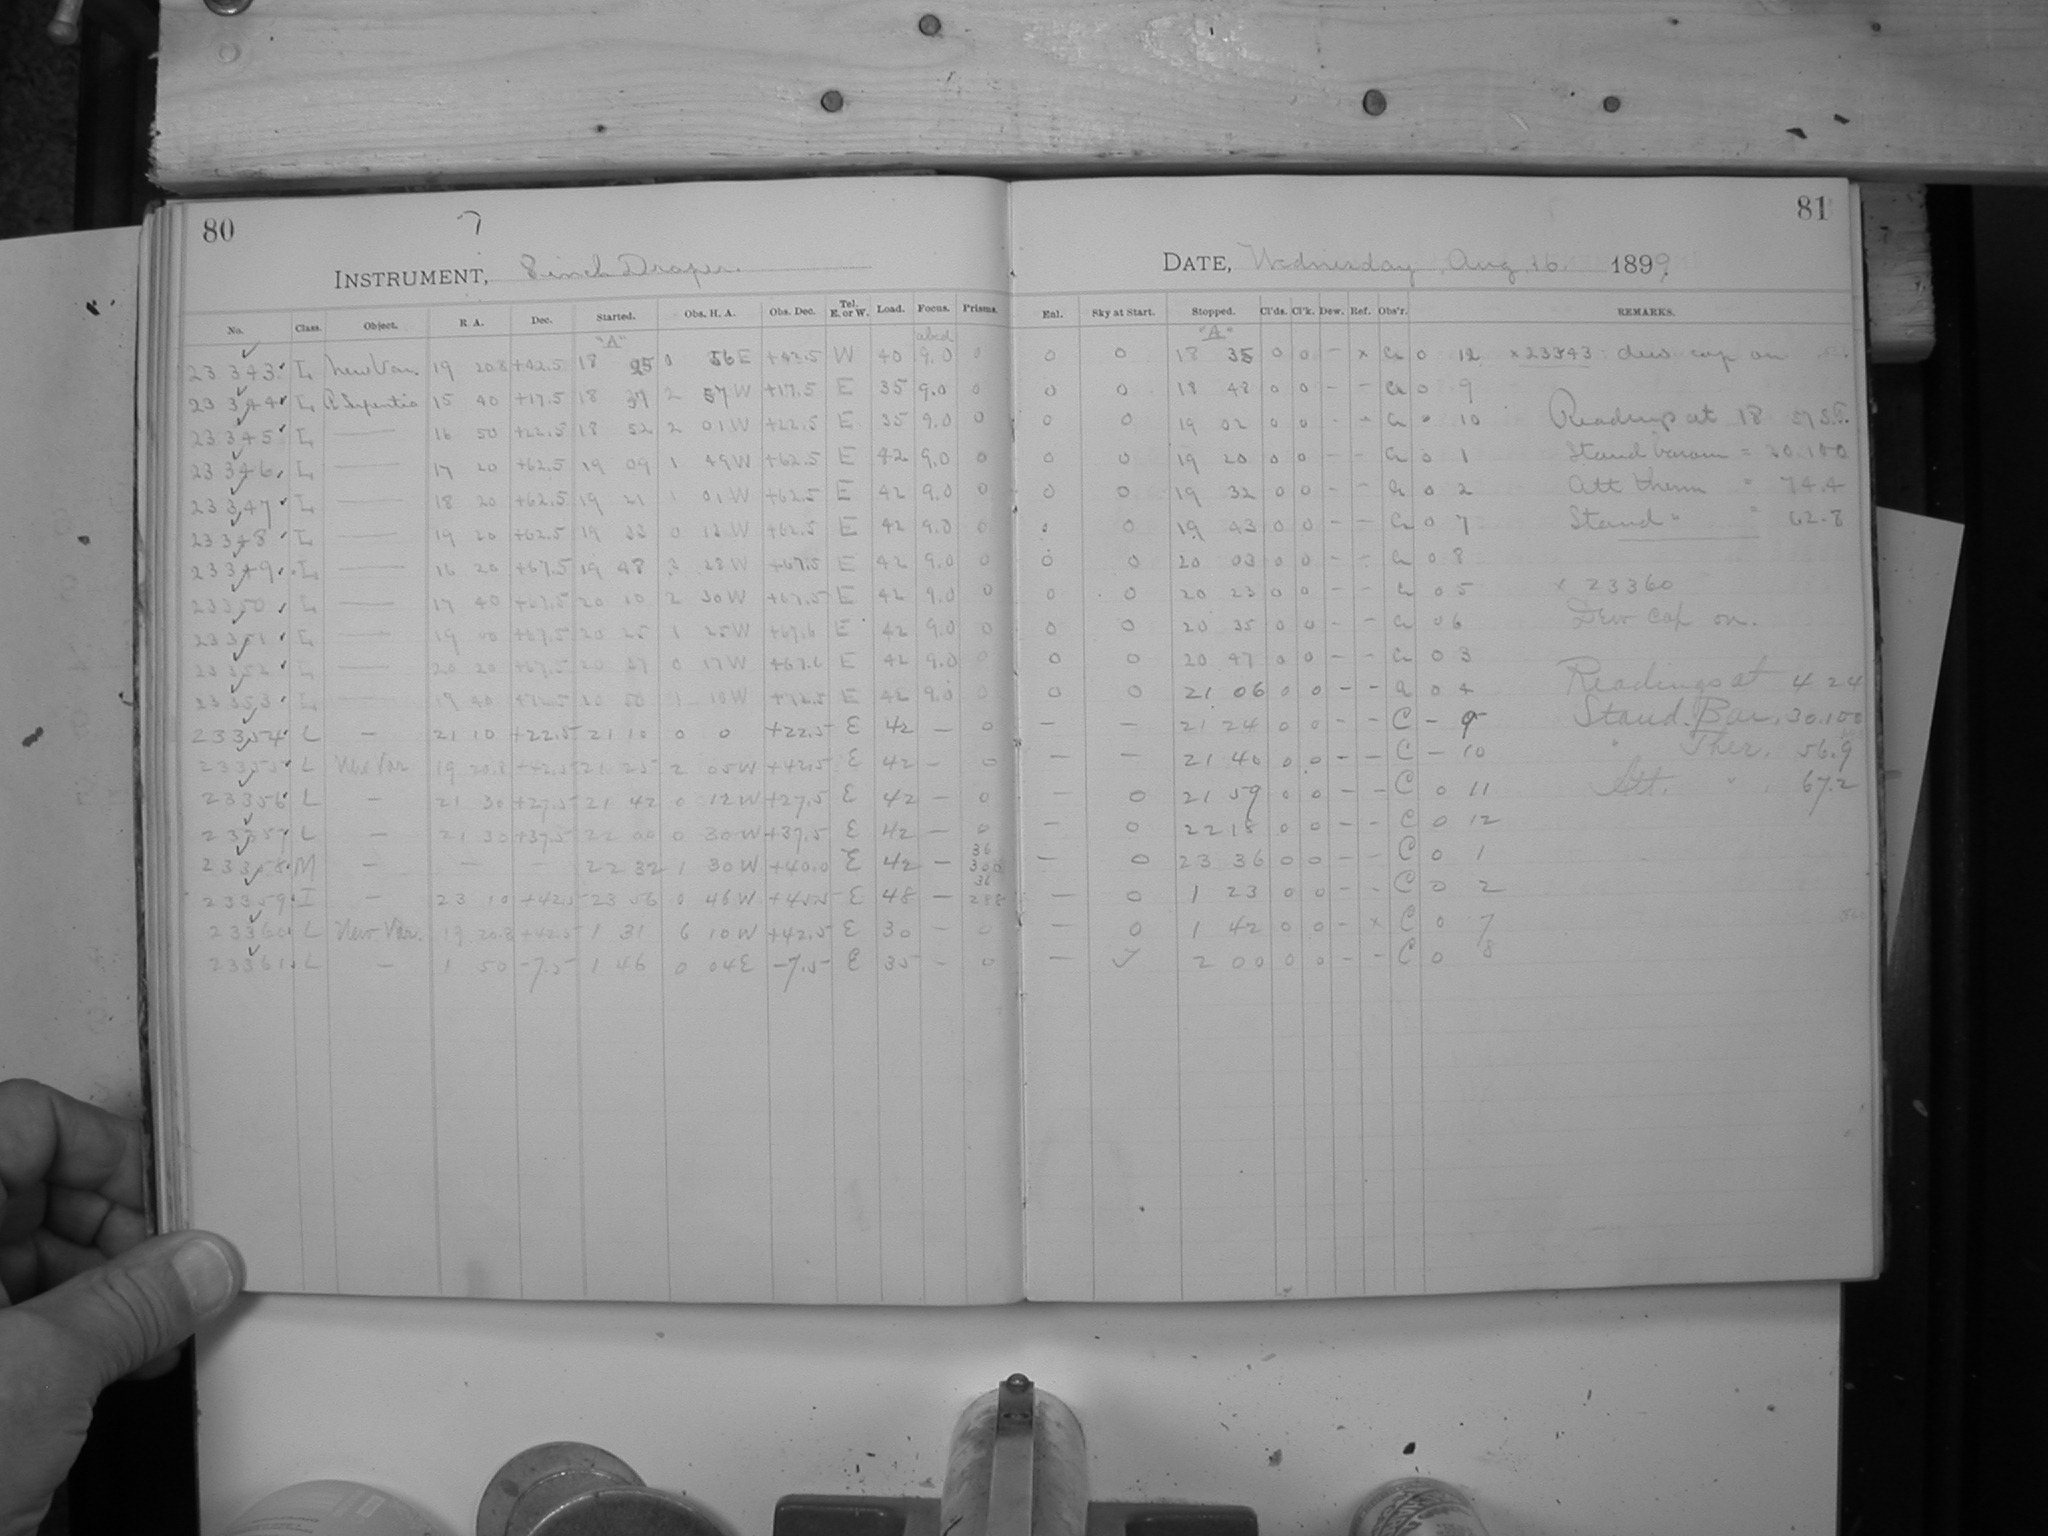 80
7
INSTRUMENT, 8 inch Draper.
No. Class. Object. R. A. Dec. Started. Obs. H. A. Obs. Dec. Tel. E. or W. Load. Focus. Prisms.
"A" abcd
23343 L New Var. 19 20.8 +42.5 18 25 0 56 E +42.5 W 40 9.0 0
23344 L R Serpentis 15 40 +17.5 18 37 2 57 W +17.5 E 35 9.0 0
23345 L — 16 50 +22.5 18 52 2 01 W +22.5 E 35 9.0 0
23346 L — 17 20 +62.5 19 09 1 49 W +62.5 E 42 9.0 0
23347 L — 18 20 +62.5 19 21 1 01 W +62.5 E 42 9.0 0
23348 L — 19 20 +62.5 19 33 0 13 W +62.5 E 42 9.0 0
23349 L — 16 20 +67.5 19 48 3 28 W +67.5 E 42 9.0 0
23350 L — 17 40 +67.5 20 10 2 30 W +67.5 E 42 9.0 0
23351 L — 19 00 +67.5 20 25 1 25 W +67.6 E 42 9.0 0
23352 L — 20 20 +67.5 20 37 0 17 W +67.6 E 42 9.0 0
23353 L — 19 40 +72.5 20 50 1 10 W +72.5 E 42 9.0 0
23354 L — 21 10 +22.5 21 10 0 0 +22.5 E 42 — 0
23355 L New Var 19 20.8 +42.5 21 25 2 05 W +42.5 E 42 — 0
23356 L — 21 30 +27.5 21 42 0 12 W +27.5 E 42 — 0
23357 L — 21 30 +37.5 22 00 0 30 W +37.5 E 42 — 0
23358 M — — — 22 32 1 30 W +40.0 E 42 — 36 300
23359 I — 23 10 +42.5 23 56 0 46 W +42.5 E 48 — 36 288
23360 L New Var. 19 20.8 +42.5 1 31 6 10 W +42.5 E 30 — 0
23361 L — 1 50 -7.5 1 46 0 04 E -7.5 E 35 — 0
81
DATE, Wednesday Aug 16 1899
Enl. Sky at Start. Stopped. Cl'ds. Cl'k. Dew. Ref. Obs'r. REMARKS.
"A"
0 0 18 35 0 0 - x 0 12 x 23343 : dew cap on
0 0 18 48 0 0 - - 0 9
0 0 19 02 0 0 - - 0 10 Readings at 18 57 S.T.
0 0 19 20 0 0 - - 0 1 Stand barom = 30.100
0 0 19 32 0 0 - - 0 2 Att therm " 74.4
0 0 19 43 0 0 - - 0 7 Stand " " 62.8
0 0 20 03 0 0 - - 0 8
0 0 20 23 0 0 - - 0 5 x 23360
0 0 20 35 0 0 - - 0 6 Dew cap on.
0 0 20 47 0 0 - - 0 3
0 0 21 06 0 0 - - 0 4 Readings at 4 24
— — 21 24 0 0 - - C - 9 Stand. Bar. 30.100
— — 21 40 0 0 - - C - 10 " Ther. 56.9
— 0 21 59 0 0 - - C 0 11 Att. " . 67.2
— 0 22 15 0 0 - - C 0 12
— 0 23 36 0 0 - - C 0 1
— 0 1 23 0 0 - - C 0 2
— 0 1 42 0 0 - x C 0 7
— 2 00 0 0 - - C 0 8